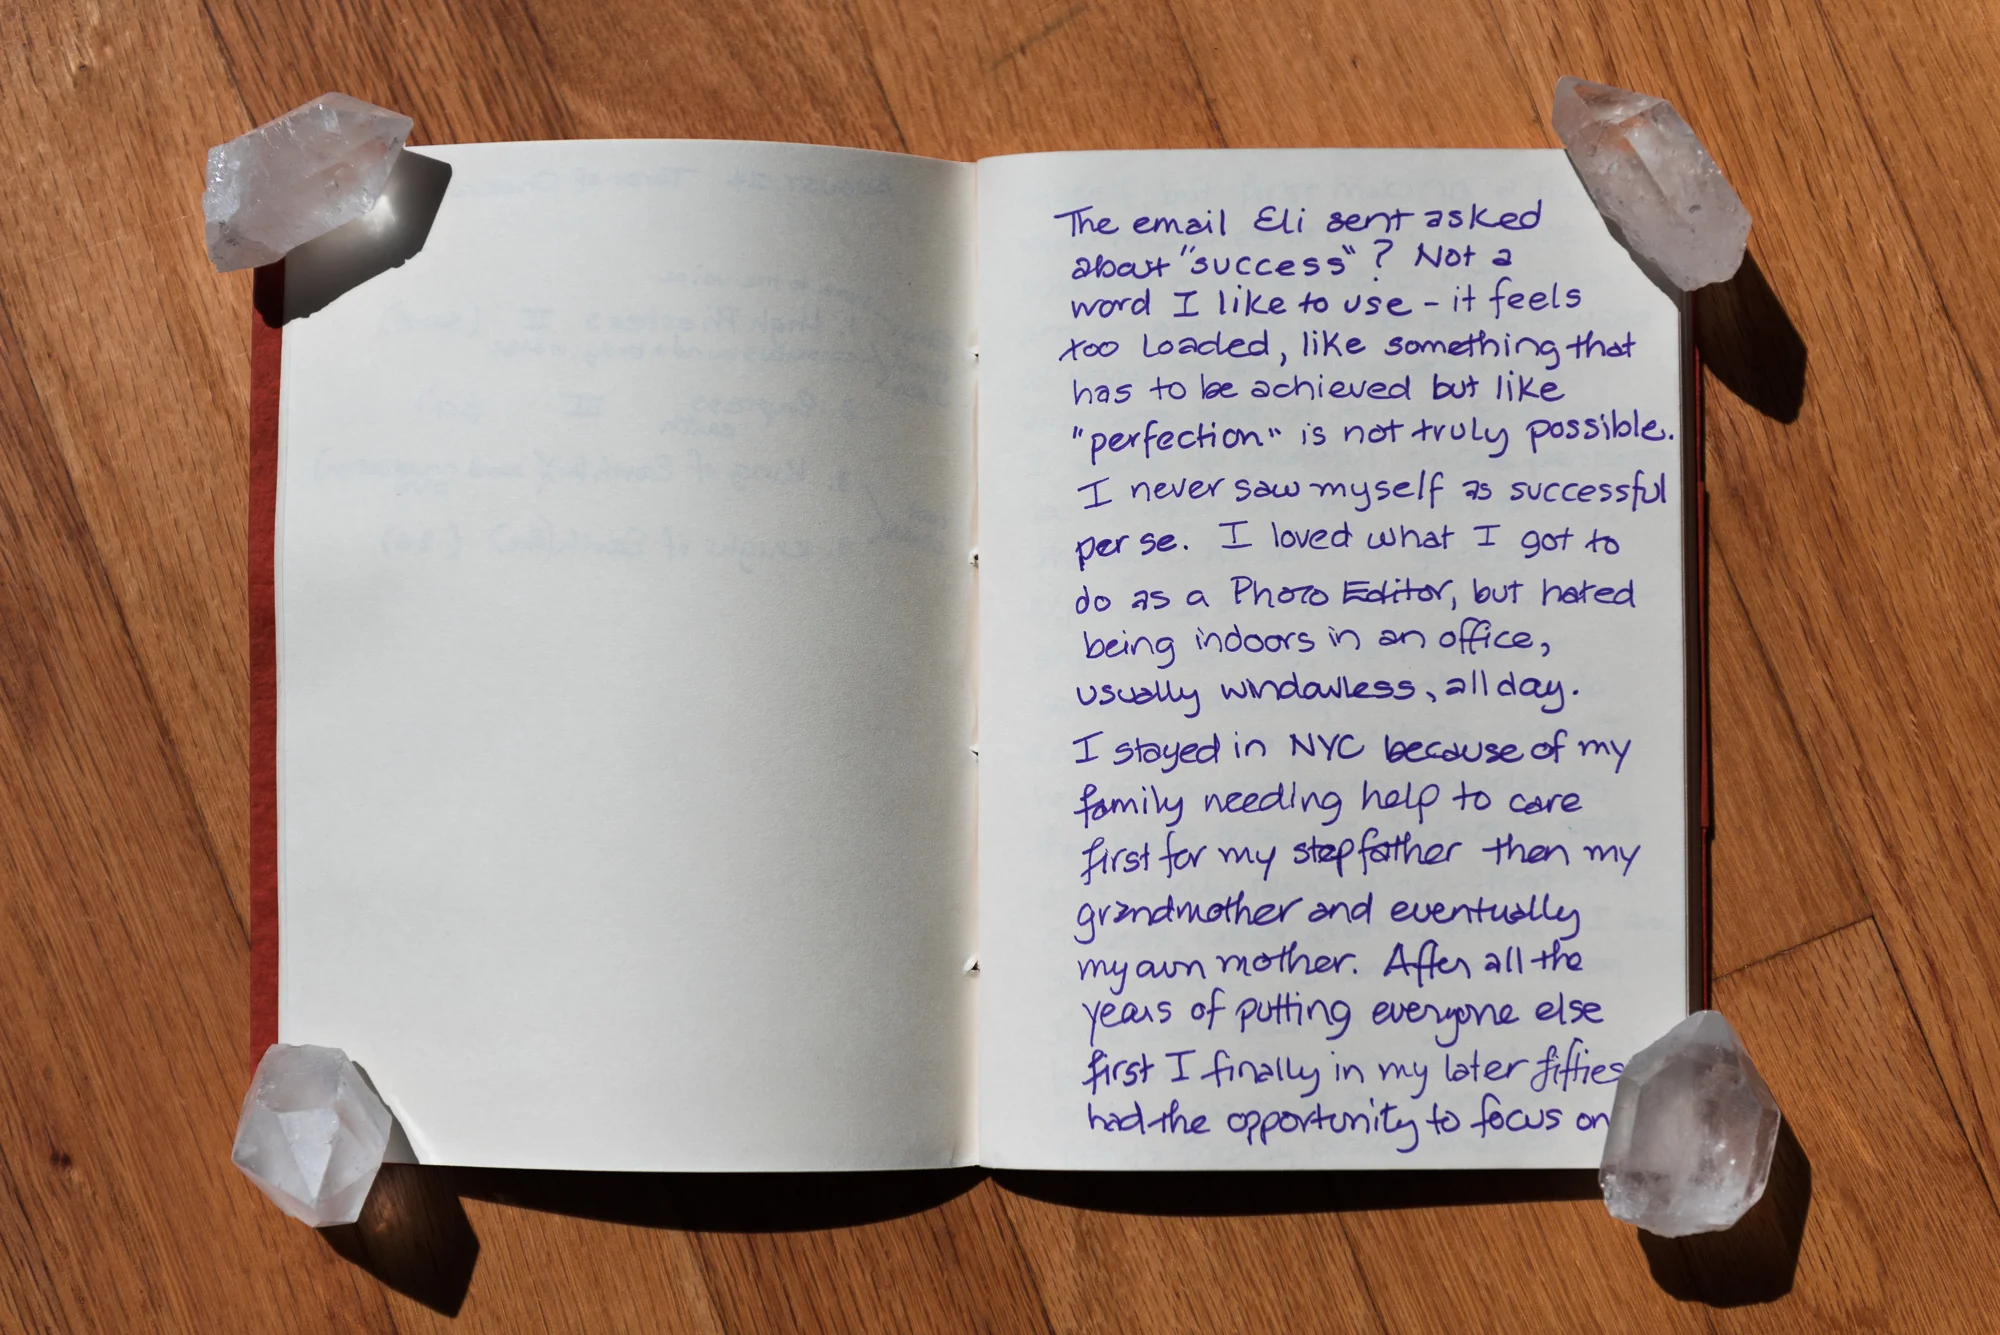 The email Eli sent asked
about "success"? Not a
word I like to use - it feels
too Loaded, like something that
has to be achieved but like
"perfection" is not truly possible.
I never saw myself as successful
per se. I loved what I got to
do as a Photo Editor, but hated
being indoors in an office,
usually windowless, all day.
I stayed in NYC because of my
family needing help to care
first for my stepfather then my
grandmother and eventually
my own mother. After all the
years of putting everyone else
first I finally in my later fifties
had the opportunity to focus on